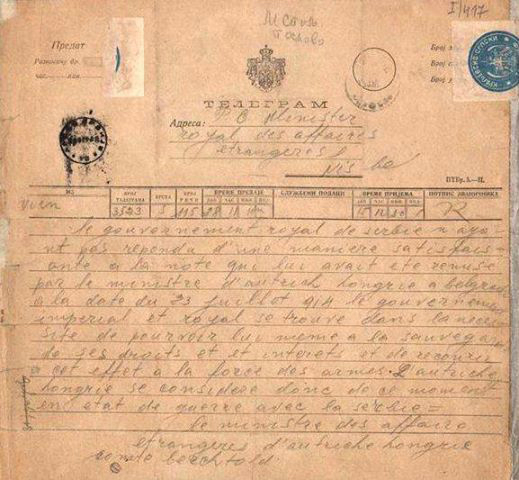 I/417
Предат
Број
Број
Број
КРАЉЕВИНА СРПСКИ
ТЕЛЕГРАМ
Адреса:
Ministre
royal des affaires
etrangeres
Nis
ПТБр. 3.—П.
ИЗ БРОЈ ТЕЛЕГРАМА ВРСТА БРОЈ РЕЧИ ВРЕМЕ ПРЕДАЈЕ СЛУЖБЕНИ ПОДАЦИ ВРЕМЕ ПРИЈЕМА ПОТПИС ЗВАНИЧНИКА
vien 3523 115 28
le gouvernement royal de serbie n aya
nt pas repondu d'une maniere satisfais
ante a la note qui lui avait ete remise
par le ministre d'autrich hongrie a belgrad
a la date du 23 juillet 914 le gouvernemen
imperial et royal se trouve dans la neces
site de pourvoir lui meme a la sauvega
de ses droits et et interets et de recourir
a cet effet a la force des armes. L'autriche
hongrie se considere donc de ce moment
en etat de guerre avec la serbie =
le ministre des affaire
etrangeres d'autriche hongrie
comte berchtold